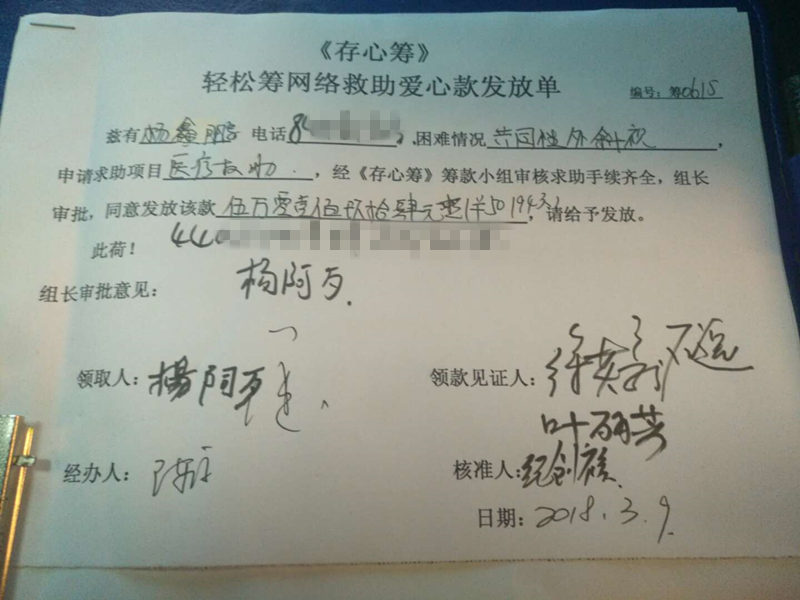 《存心筹》
轻松筹网络救助爱心款发放单
编号：筹0615
兹有杨鑫鹏 电话8 ,困难情况共同性外斜视，
申请求助项目医疗救助，经《存心筹》筹款小组审核求助手续齐全，组长
审批，同意发放该款伍万零壹佰玖拾肆元 50194.3，请给予发放。
此荷！ 440
组长审批意见： 杨阿
领取人：杨阿 领款见证人：
叶 芳
经办人：陈 核准人：纪创
日期：2018.3.9